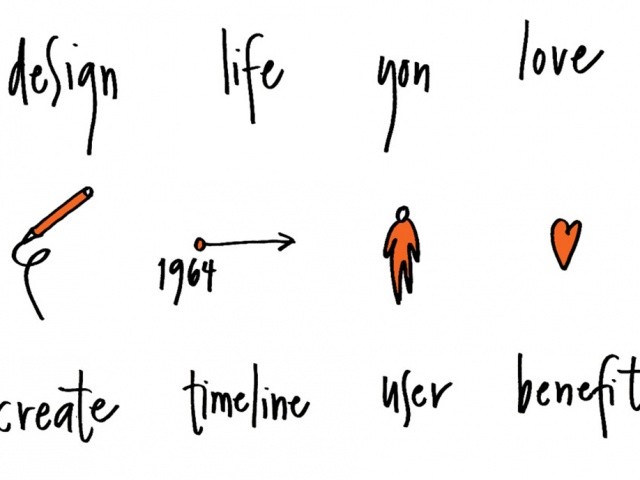 design life you love
1964
create timeline user benefit